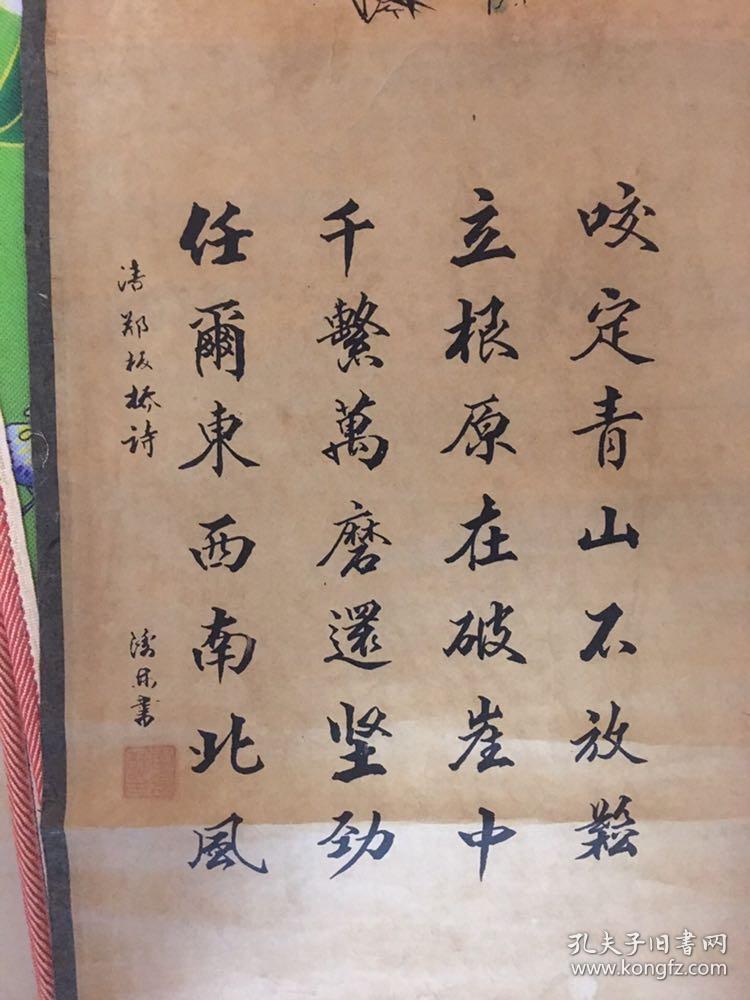 咬定青山不放鬆
立根原在破崖中
千繫萬磨還坚劲
任爾東西南北風
清郑板桥詩
書
孔夫子旧書网
www.kongfz.com